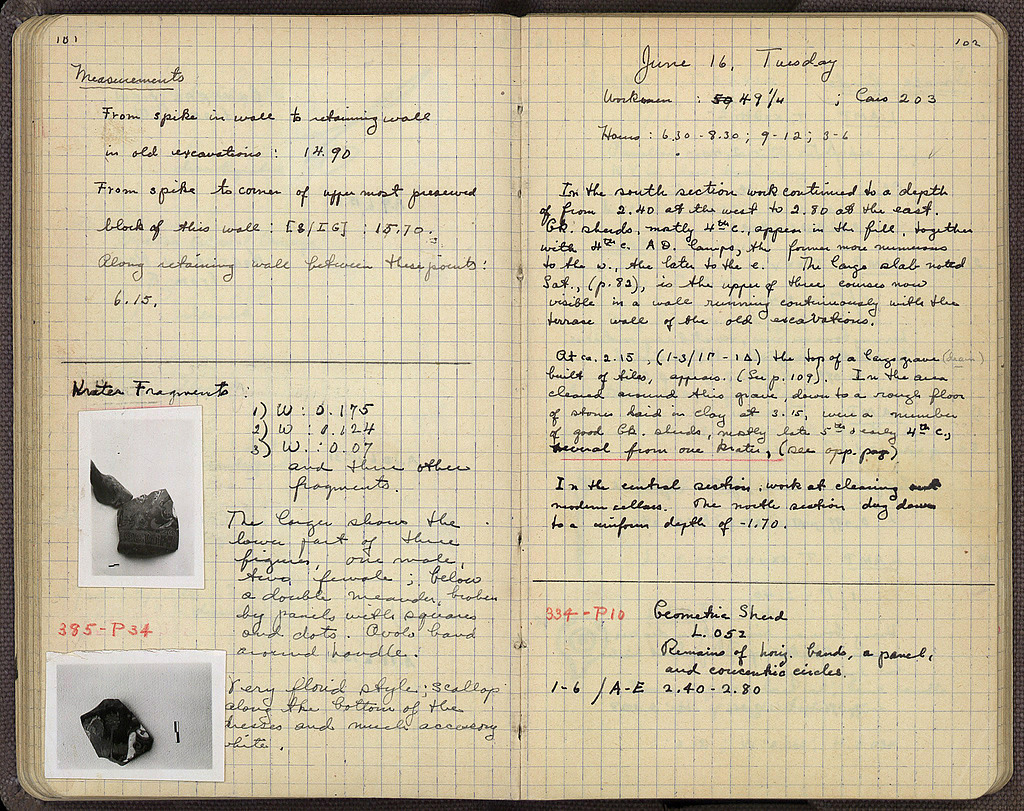 101
Measurements
From spike in wall to retaining wall
in old excavations : 14.90
From spike to corner of upper most preserved
block of this wall : [8/IG] : 15.70.
Along retaining wall between these points :
6.15.
Krater Fragments :
1) W : 0.175
2) W : 0.124
3) W. : 0.07
and three other
fragments.
The larger shows the
lower part of three
figures, one male,
two, female ; below
a double meander, broken
by panels with squares
and dots. Ovolo band
around handle.
385-P34
Very florid style ; scallop
along the bottom of the
dresses and much accessory
white.
102
June 16, Tuesday
Workmen : 59 49 1/4 ; Cars 203
Hours : 6.30 - 8.30 ; 9-12 ; 3-6
In the south section work continued to a depth
of from 2.40 at the west to 2.80 at the east.
Gk. sherds, mostly 4th c., appear in the fill, together
with 4th c. A.D. lamps, the former more numerous
to the w., the later to the e. The large slab noted
Sat., (p. 82), is the upper of three courses now
visible in a wall running continuously with the
terrace wall of the old excavations.
At ca. 2.15, (1-3/1Γ - 1Δ) the top of a large grave (drain)
built of tiles, appears. (See p. 109). In the area
cleared around this grave, down to a rough floor
of stones laid in clay at 3.15, were a number
of good Gk. sherds, mostly late 5th & early 4th c.,
several from one krater, (see opp. page)
In the central section, work at cleaning out
modern cellars. The north section dug down
to a uniform depth of -1.70.
334-P10 Geometric Sherd
L. 052
Remains of horiz. bands, a panel,
and concentric circles.
1-6 / A-E 2.40 - 2.80